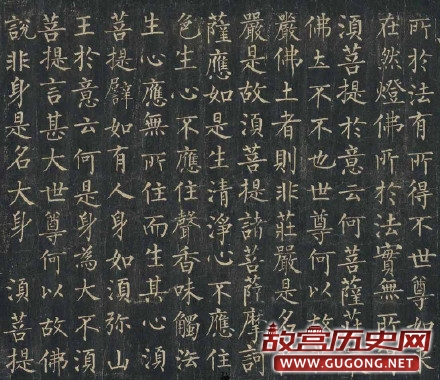 所於法有所得不世尊如來
在然燈佛所於法實無所
須菩提於意云何菩薩
佛土不不也世尊何以故
嚴佛土者則非莊嚴是名
嚴是故須菩提諸菩薩摩訶
薩應如是生清淨心不應住
色生心不應住聲香味觸法
生心應無所住而生其心須
菩提譬如有人身如須弥山
王於意云何是身為大不須
菩提言甚大世尊何以故佛
說非身是名大身 須菩提
故宫历史网
WWW.GUGONG.NET